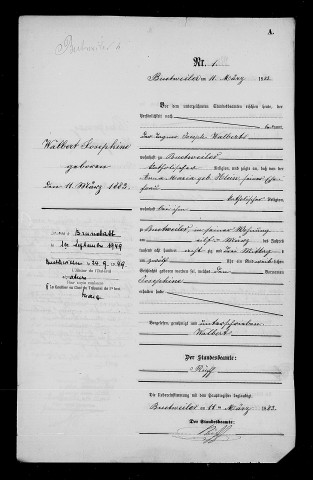 A.
Buchsweiler
Nr. 1.
Buchsweiler am 11. März 1883.
Vor dem unterzeichneten Standesbeamten erschien heute, der
Persönlichkeit nach
kannt,
Joseph Walbert
wohnhaft zu Buchsweiler
katholischer Religion, und zeigte an, daß von der
Anna Maria geb. Klein seiner Ehe-
frau
katholischer Religion,
wohnhaft bei ihm
zu Buchsweiler in seiner Wohnung
am elften März des Jahres
tausend acht hundert achtzig und drei Mittags
um zwölf Uhr ein Kind weiblichen
Geschlechts geboren worden sei, welches den Vornamen
Josephine
erhalten habe.
Vorgelesen, genehmigt und unterschrieben
Walbert
Der Standesbeamte:
Ruff
Die Uebereinstimmung mit dem Hauptregister beglaubigt
Buchsweiler am 11. März 1883.
Der Standesbeamte:
Ruff
Walbert Josephine
geboren
den 11. März 1883.
Brunstatt
1er Septembre 1949
24.9.49
L'Officier de l'Etat-Civil
Pour copie conforme
Le Greffier en Chef du Tribunal de 1re Inst.